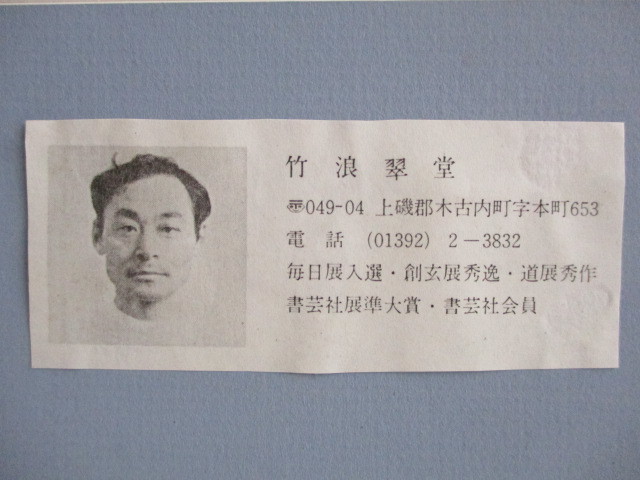 竹浪翠堂
〠049-04 上磯郡木古内町字本町653
電話 (01392) 2-3832
毎日展入選・創玄展秀逸・道展秀作
書芸社展準大賞・書芸社会員